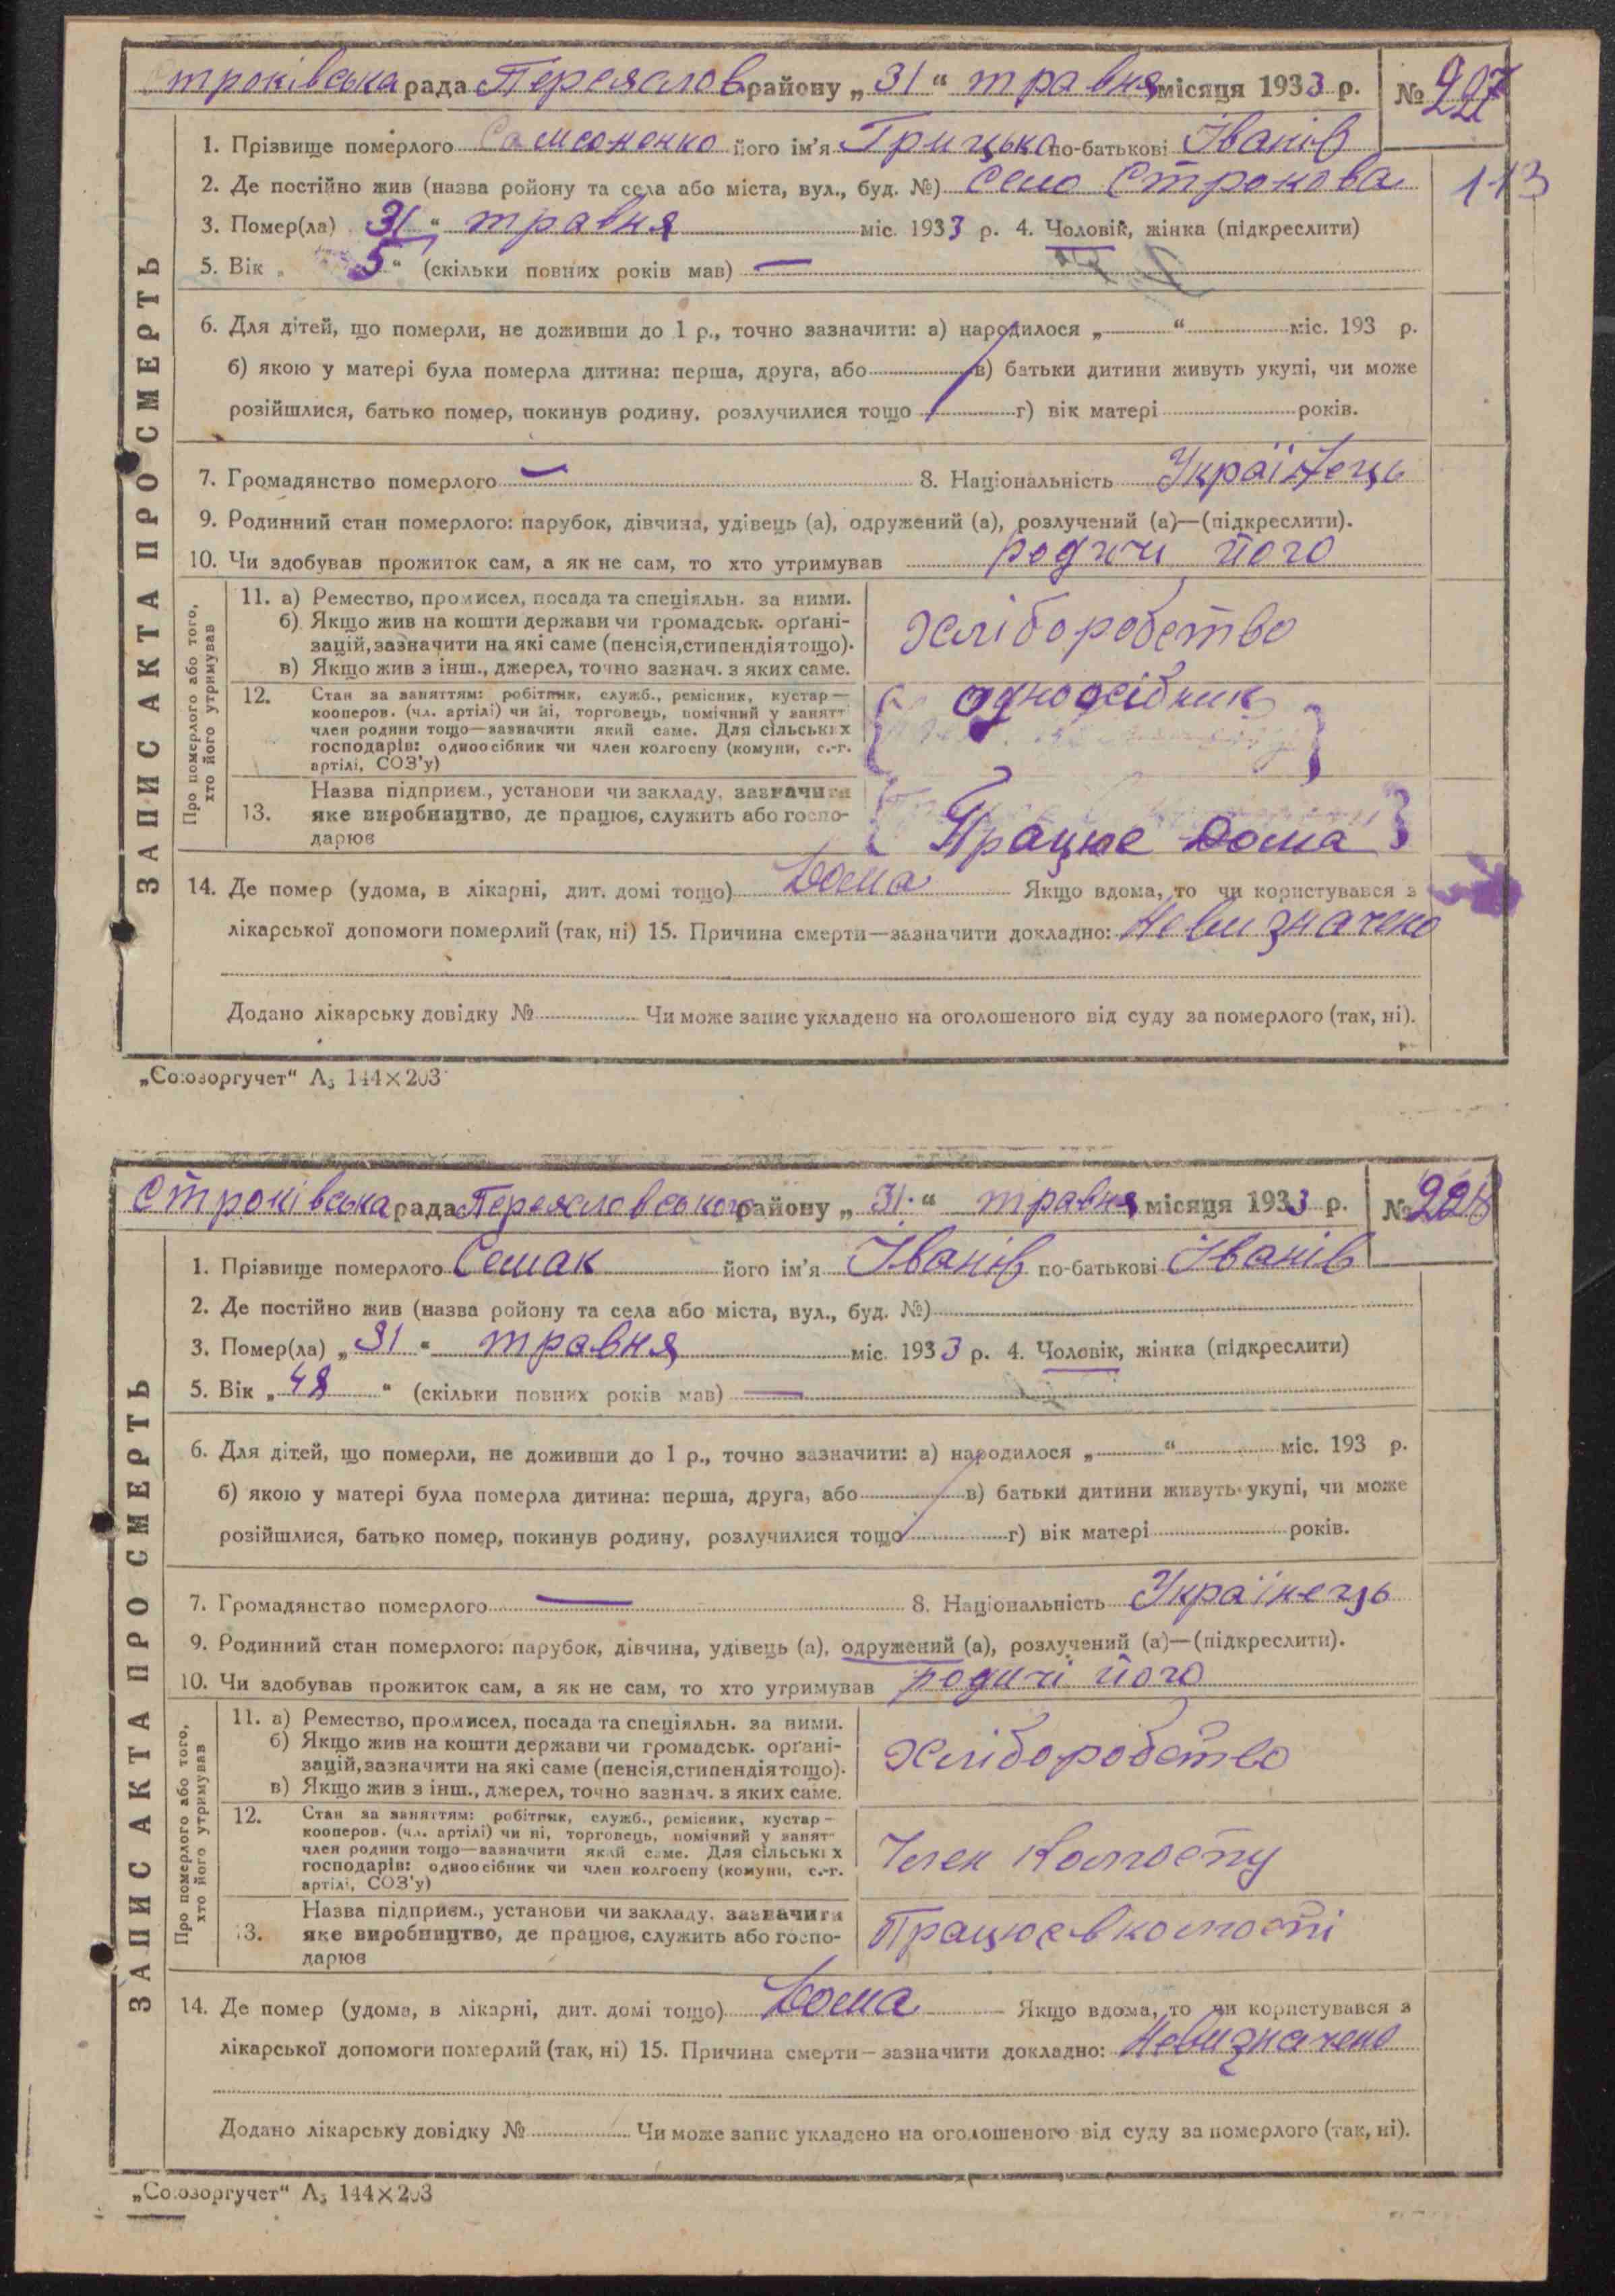 Строківська рада Переяслов району „ 31 “ травня місяця 1933 р. № 227
113
1. Прізвище померлого Самсоненко його ім'я Грицько по-батькові Іванів
2. Де постійно жив (назва ройону та села або міста, вул., буд. №) Село Строкова
3. Помер(ла) 31 “ травня міс. 1933 р. 4. Чоловік, жінка (підкреслити)
5. Вік „ 5 “ (скільки повних років мав) —
6. Для дітей, що померли, не доживши до 1 р., точно зазначити: а) народилося „ “ міс. 193 р.
б) якою у матері була померла дитина: перша, друга, або в) батьки дитини живуть укупі, чи може
розійшлися, батько помер, покинув родину, розлучилися тощо г) вік матері років.
7. Громадянство померлого — 8. Національність Українець
9. Родинний стан померлого: парубок, дівчина, удівець (а), одружений (а), розлучений (а)—(підкреслити).
10. Чи здобував прожиток сам, а як не сам, то хто утримував родичи його
ЗАПИС АКТА ПРО СМЕРТЬ
Про померлого або того, хто його утримував
11. а) Ремество, промисел, посада та спеціяльн. за ними.
б) Якщо жив на кошти держави чи громадськ. орґані-
зацій, зазначити на які саме (пенсія, стипендія тощо).
в) Якщо жив з інш., джерел, точно зазнач. з яких саме.
Хліборобство
12. Стан за заняттям: робітник, служб., ремісник, кустар—
кооперов. (чл. артілі) чи ні, торговець, помічний у занят
член родини тощо—зазначити який саме. Для сільських
господарів: одноосібник чи член колгоспу (комуни, с.-г.
артілі, СОЗ'у)
одноосібник
13. Назва підприєм., установи чи закладу, зазначити
яке виробництво, де працює, служить або госпо-
дарює
Працює дома
14. Де помер (удома, в лікарні, дит. домі тощо) Дома Якщо вдома, то чи користувався з
лікарської допомоги померлий (так, ні) 15. Причина смерти—зазначити докладно: Невизначено
Додано лікарську довідку № Чи може запис укладено на оголошеного від суду за померлого (так, ні).
„Союзоргучет“ А₅ 144×203
Строківська рада Переясловського району „ 31. “ травня місяця 1933 р. № 228
1. Прізвище померлого Семак його ім'я Іванів по-батькові Іванів
2. Де постійно жив (назва ройону та села або міста, вул., буд. №)
3. Помер(ла) „ 31 “ травня міс. 1933 р. 4. Чоловік, жінка (підкреслити)
5. Вік „ 48 “ (скільки повних років мав) —
6. Для дітей, що померли, не доживши до 1 р., точно зазначити: а) народилося „ “ міс. 193 р.
б) якою у матері була померла дитина: перша, друга, або в) батьки дитини живуть укупі, чи може
розійшлися, батько помер, покинув родину, розлучилися тощо г) вік матері років.
7. Громадянство померлого — 8. Національність Українець
9. Родинний стан померлого: парубок, дівчина, удівець (а), одружений (а), розлучений (а)—(підкреслити).
10. Чи здобував прожиток сам, а як не сам, то хто утримував родичі його
ЗАПИС АКТА ПРО СМЕРТЬ
Про померлого або того, хто його утримував
11. а) Ремество, промисел, посада та спеціяльн. за ними.
б) Якщо жив на кошти держави чи громадськ. орґані-
зацій, зазначити на які саме (пенсія, стипендія тощо).
в) Якщо жив з інш., джерел, точно зазнач. з яких саме.
Хліборобство
12. Стан за заняттям: робітник, служб., ремісник, кустар—
кооперов. (чл. артілі) чи ні, торговець, помічний у занят
член родини тощо—зазначити який саме. Для сільських
господарів: одноосібник чи член колгоспу (комуни, с.-г.
артілі, СОЗ'у)
Член Колгоспу
13. Назва підприєм., установи чи закладу, зазначити
яке виробництво, де працює, служить або госпо-
дарює
Працює в колгоспі
14. Де помер (удома, в лікарні, дит. домі тощо) Дома Якщо вдома, то чи користувався з
лікарської допомоги померлий (так, ні) 15. Причина смерти—зазначити докладно: Невизначено
Додано лікарську довідку № Чи може запис укладено на оголошеного від суду за померлого (так, ні).
„Союзоргучет“ А₅ 144×203